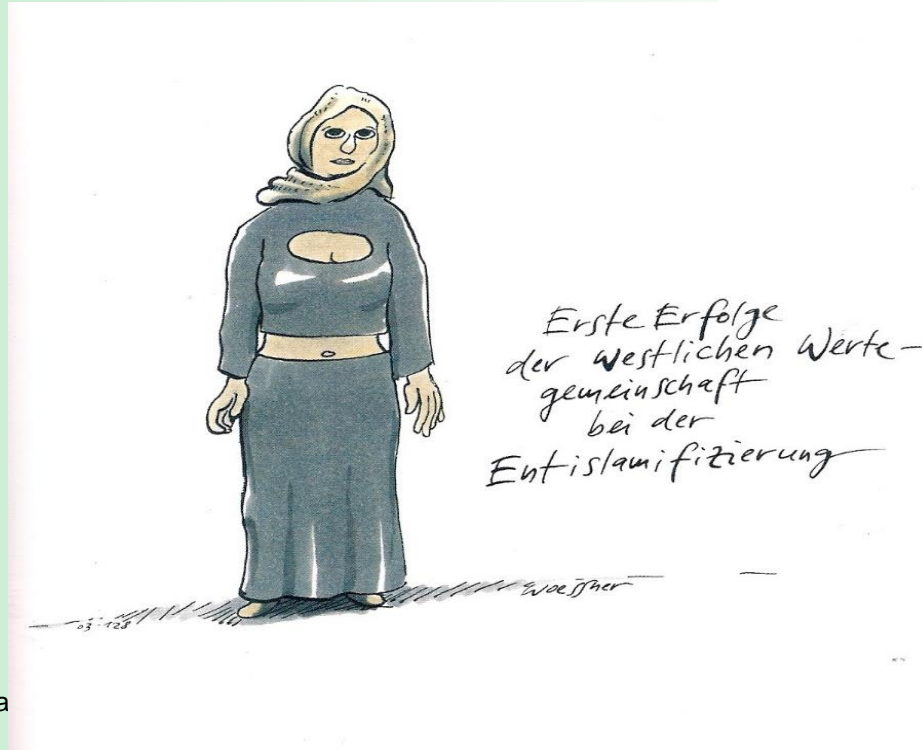 Erste Erfolge
der westlichen Werte-
gemeinschaft
bei der
Entislamifizierung
woessner
03-128
a